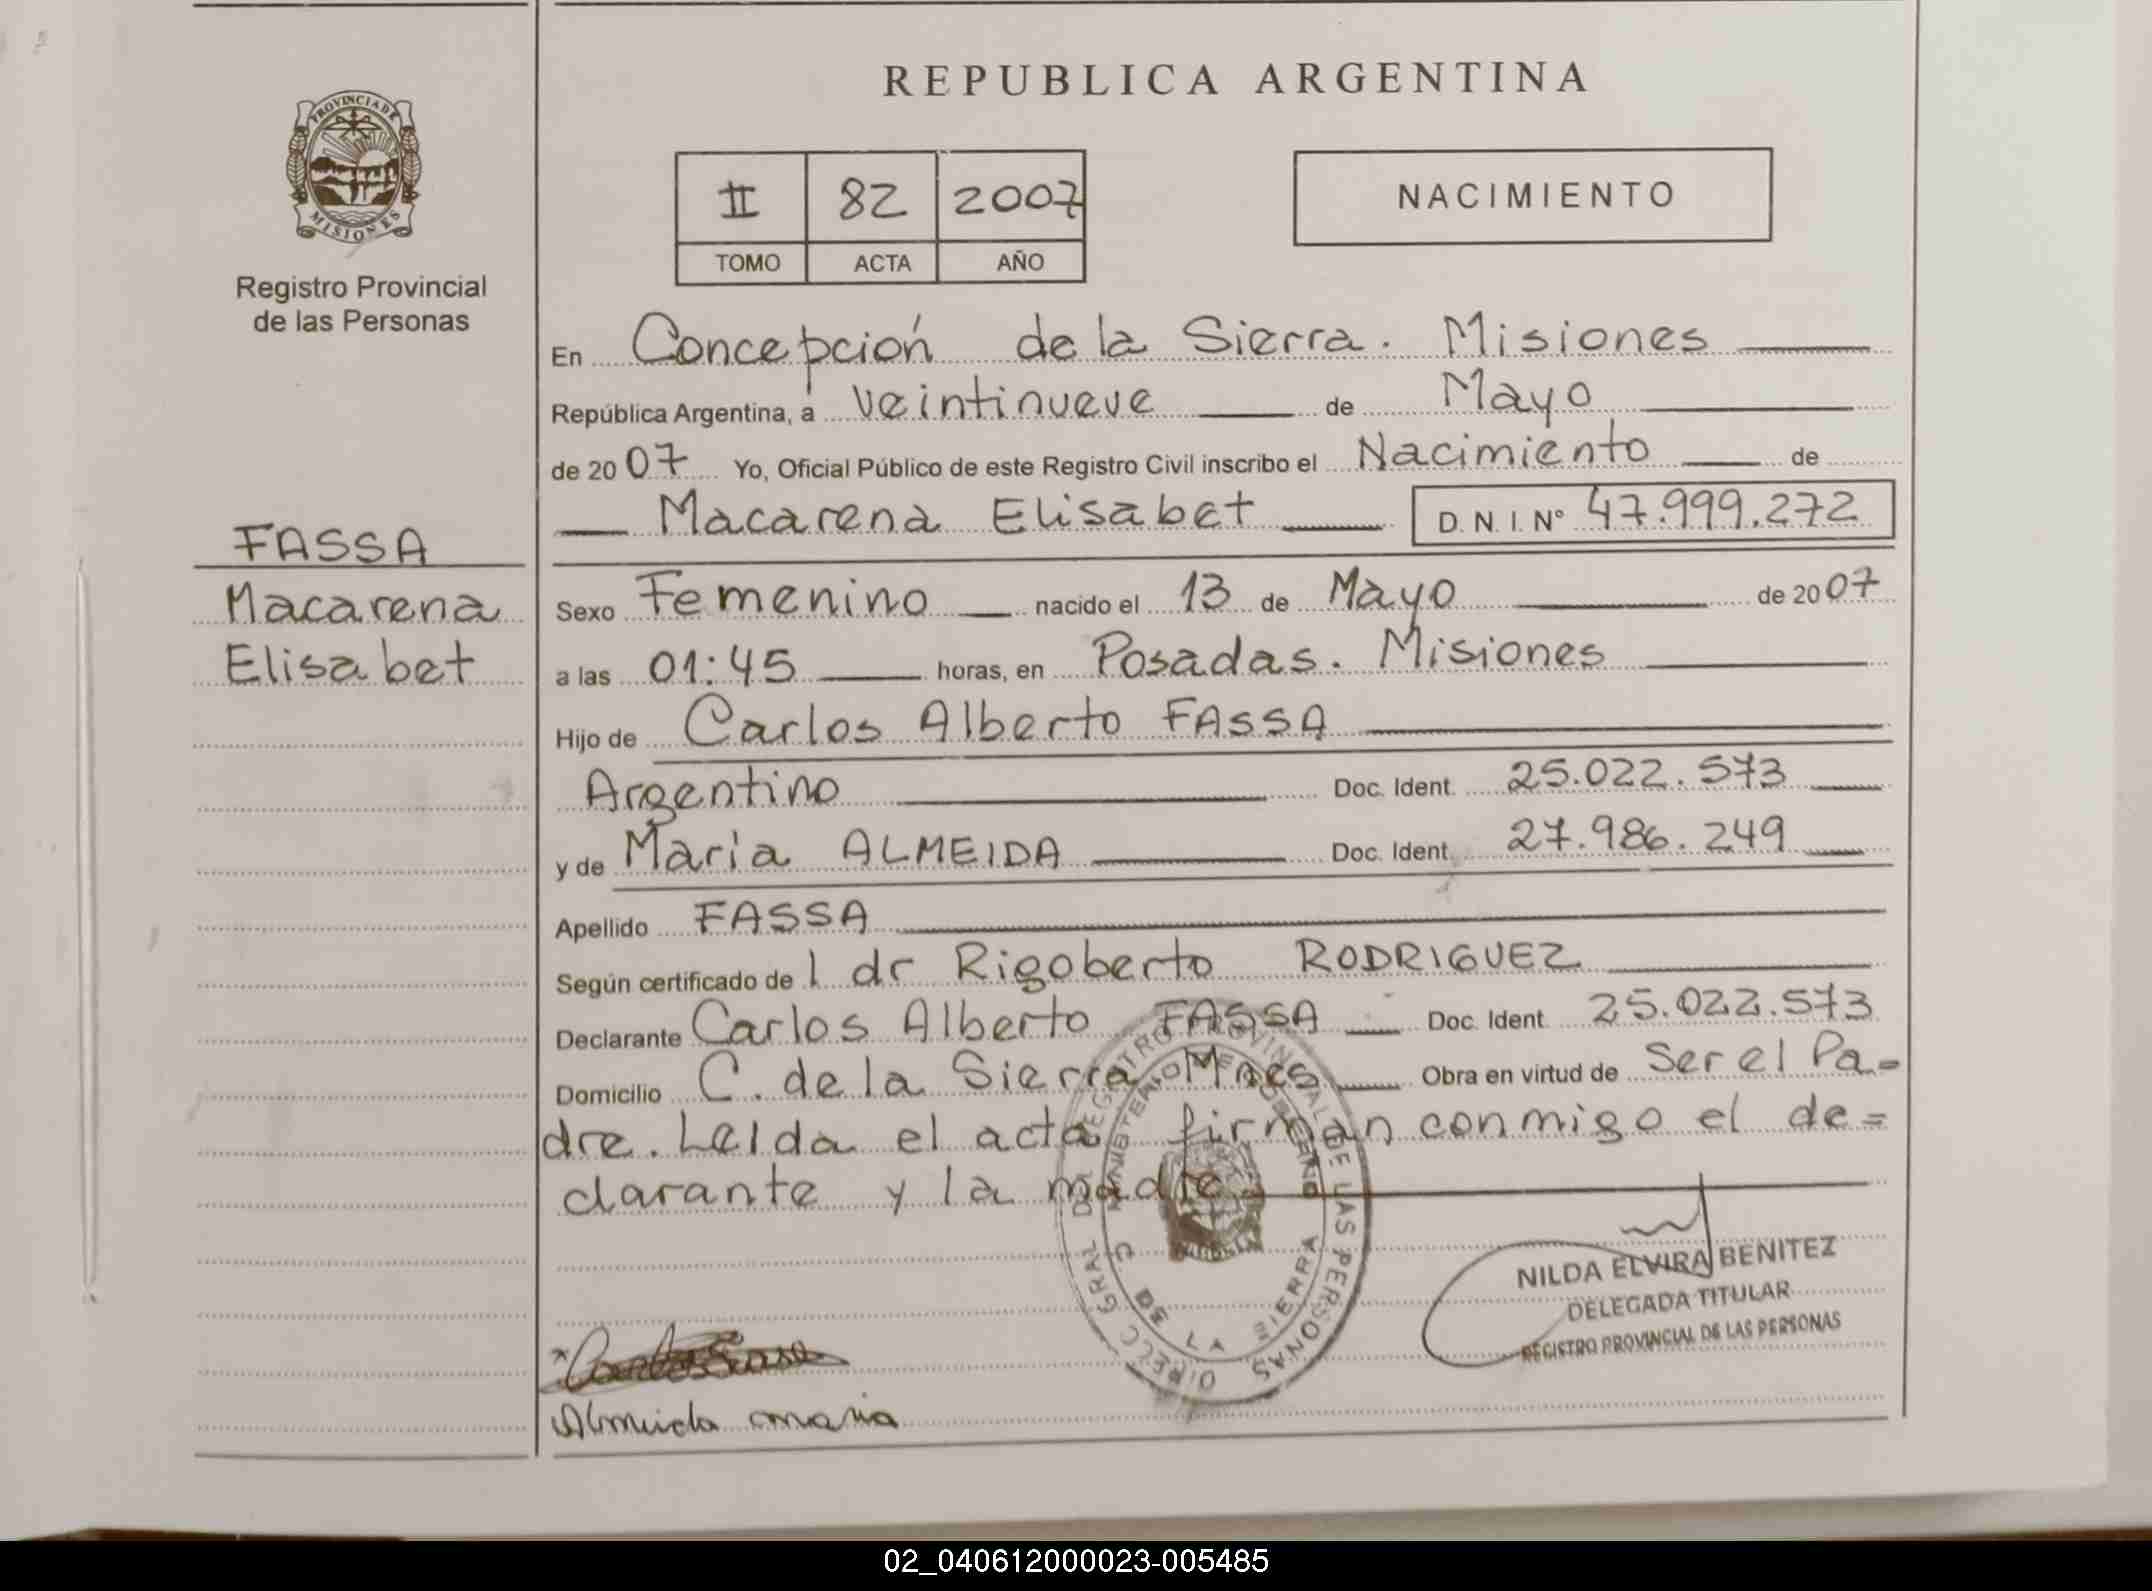 REPUBLICA ARGENTINA
PROVINCIA DE
MISIONES
Registro Provincial
de las Personas
II 82 2007
TOMO ACTA AÑO
NACIMIENTO
FASSA
Macarena
Elisabet
En Concepción de la Sierra. Misiones
República Argentina, a veintinueve de Mayo
de 2007 Yo, Oficial Público de este Registro Civil inscribo el Nacimiento de
Macarena Elisabet D. N. I. Nº 47.999.272
Sexo Femenino nacido el 13 de Mayo de 2007
a las 01:45 horas, en Posadas. Misiones
Hijo de Carlos Alberto FASSA
Argentino Doc. Ident. 25.022.573
y de Maria ALMEIDA Doc. Ident. 27.986.249
Apellido FASSA
Según certificado de l dr Rigoberto RODRIGUEZ
Declarante Carlos Alberto FASSA Doc. Ident. 25.022.573
Domicilio C. de la Sierra Mnes Obra en virtud de Ser el Pa-
dre. Leida el acta firman conmigo el de=
clarante y la madre.
DIRECC GRAL DEL REGISTRO PROVINCIAL DE LAS PERSONAS
MINISTERIO DE GOBIERNO
C DE LA SIERRA
NILDA ELVIRA BENITEZ
DELEGADA TITULAR
REGISTRO PROVINCIAL DE LAS PERSONAS
Almeida maria
02_040612000023-005485